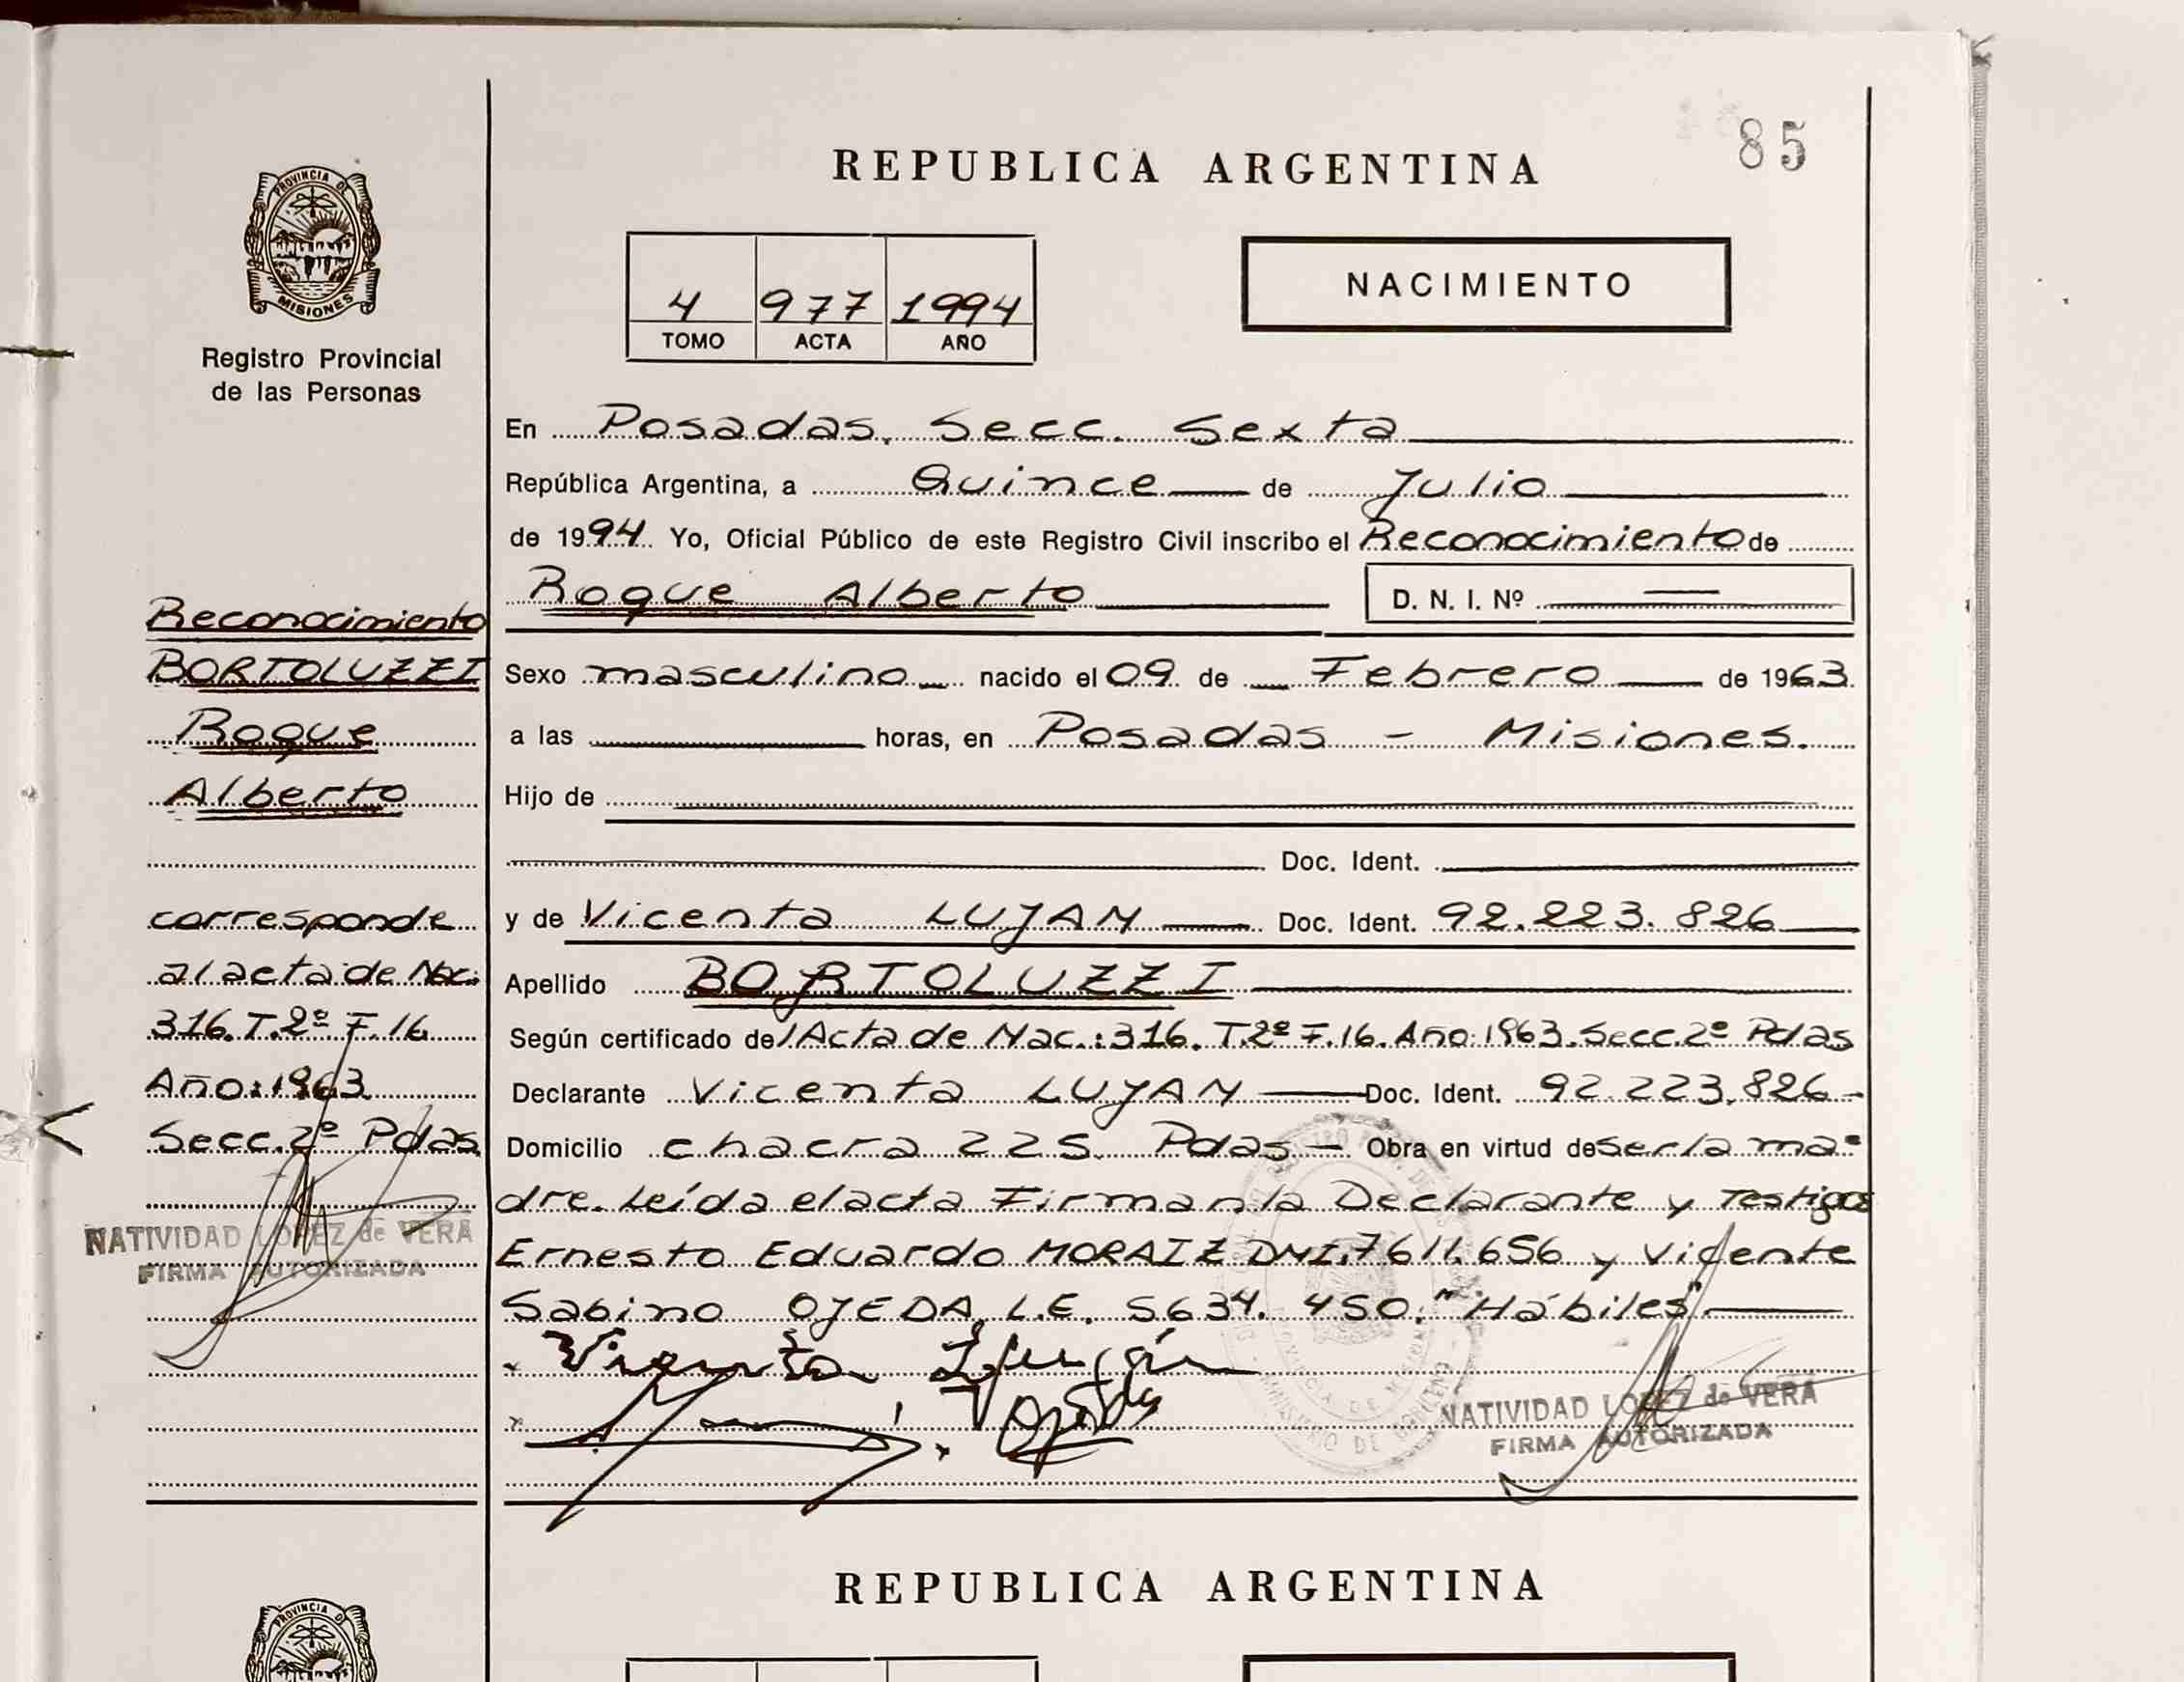 85
REPUBLICA ARGENTINA
PROVINCIA DE
MISIONES
Registro Provincial
de las Personas
4 977 1994
TOMO ACTA AÑO
NACIMIENTO
En Posadas. Secc. Sexta
República Argentina, a Quince de Julio
de 1994. Yo, Oficial Público de este Registro Civil inscribo el Reconocimiento de
Roque Alberto D. N. I. Nº
Sexo masculino nacido el 09 de Febrero de 1963
a las horas, en Posadas - Misiones.
Hijo de
Doc. Ident.
y de Vicenta LUJAN Doc. Ident. 92.223.826
Apellido BORTOLUZZI
Según certificado del Acta de Nac.: 316. T.2º F.16. Año: 1963. Secc. 2º Pdas
Declarante Vicenta LUJAN Doc. Ident. 92.223.826-
Domicilio chacra 225 Pdas - Obra en virtud de ser la ma=
dre. Leída el acta Firman la Declarante y Testigos
Ernesto Eduardo MORAIZ DNI. 7611.656 y Vicente
Sabino OJEDA, L.E. 5634.450. "Hábiles"
Vicenta Luján
Ojeda
NATIVIDAD LOPEZ de VERA
FIRMA AUTORIZADA
Reconocimiento
BORTOLUZZI
Roque
Alberto
corresponde
al acta de Nac:
316. T.2º F.16
Año: 1963
Secc. 2º Pdas
NATIVIDAD LOPEZ de VERA
FIRMA AUTORIZADA
REPUBLICA ARGENTINA
PROVINCIA D